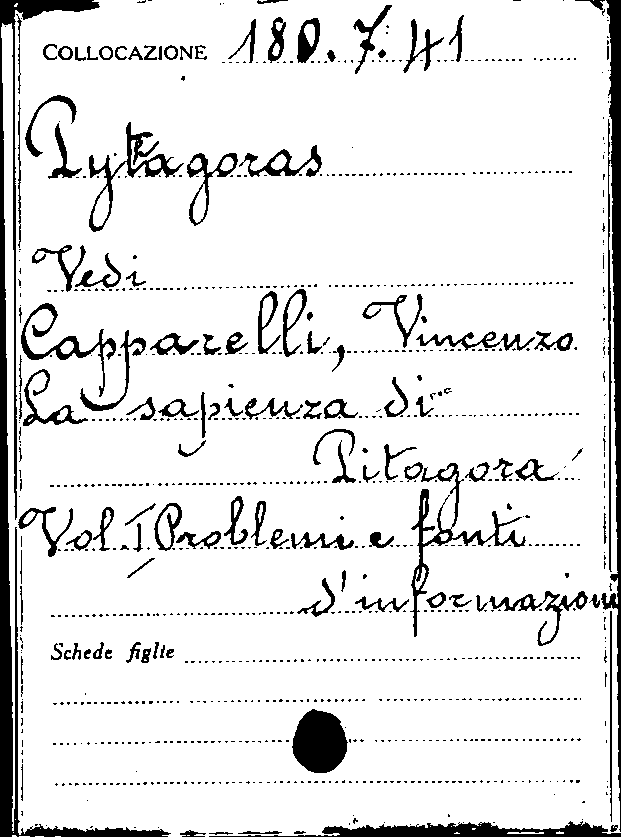 COLLOCAZIONE 180.7.41
Pytagoras
Vedi
Capparelli, Vincenzo
La sapienza di
Pitagora
Vol. I Problemi e fonti
d'informazioni
Schede figlie